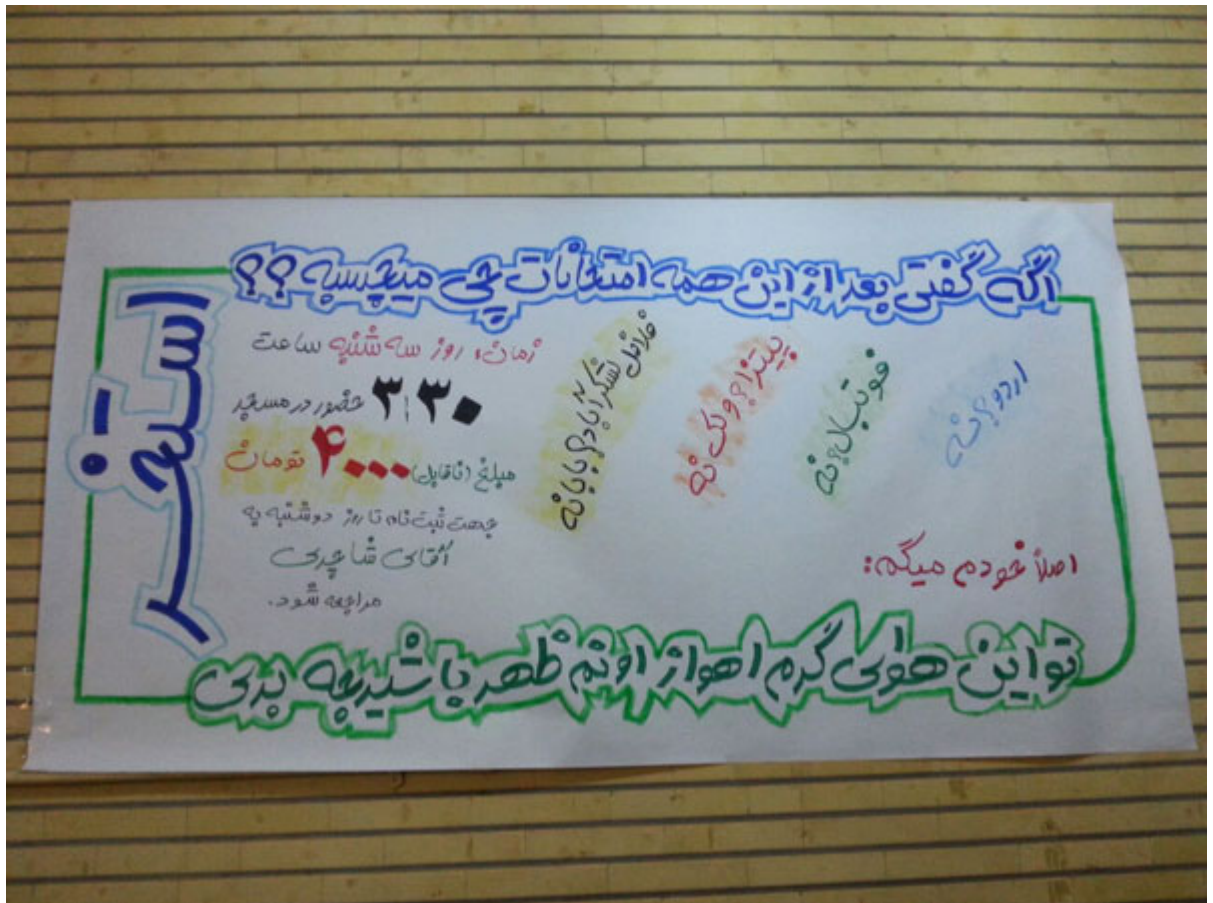 اگه گفتی بعد از این همه امتحانات چی میچسبه؟؟
اردو؟ نه
فوتبال؟ نه
پیتزا؟ ولک نه
فلافل لشکرآباد؟ بابا نه
اصلاً خودم میگم:
تو این هوای گرم اهواز اونم ظهر با شیرجه بدی
استخر
زمان: روز سه شنبه ساعت
۳:۳۰ حضور در مسجد
مبلغ (ناقابل) ۴۰۰۰ تومان
جهت ثبت نام تا روز دوشنبه به
آقای شاجری
مراجعه شود.